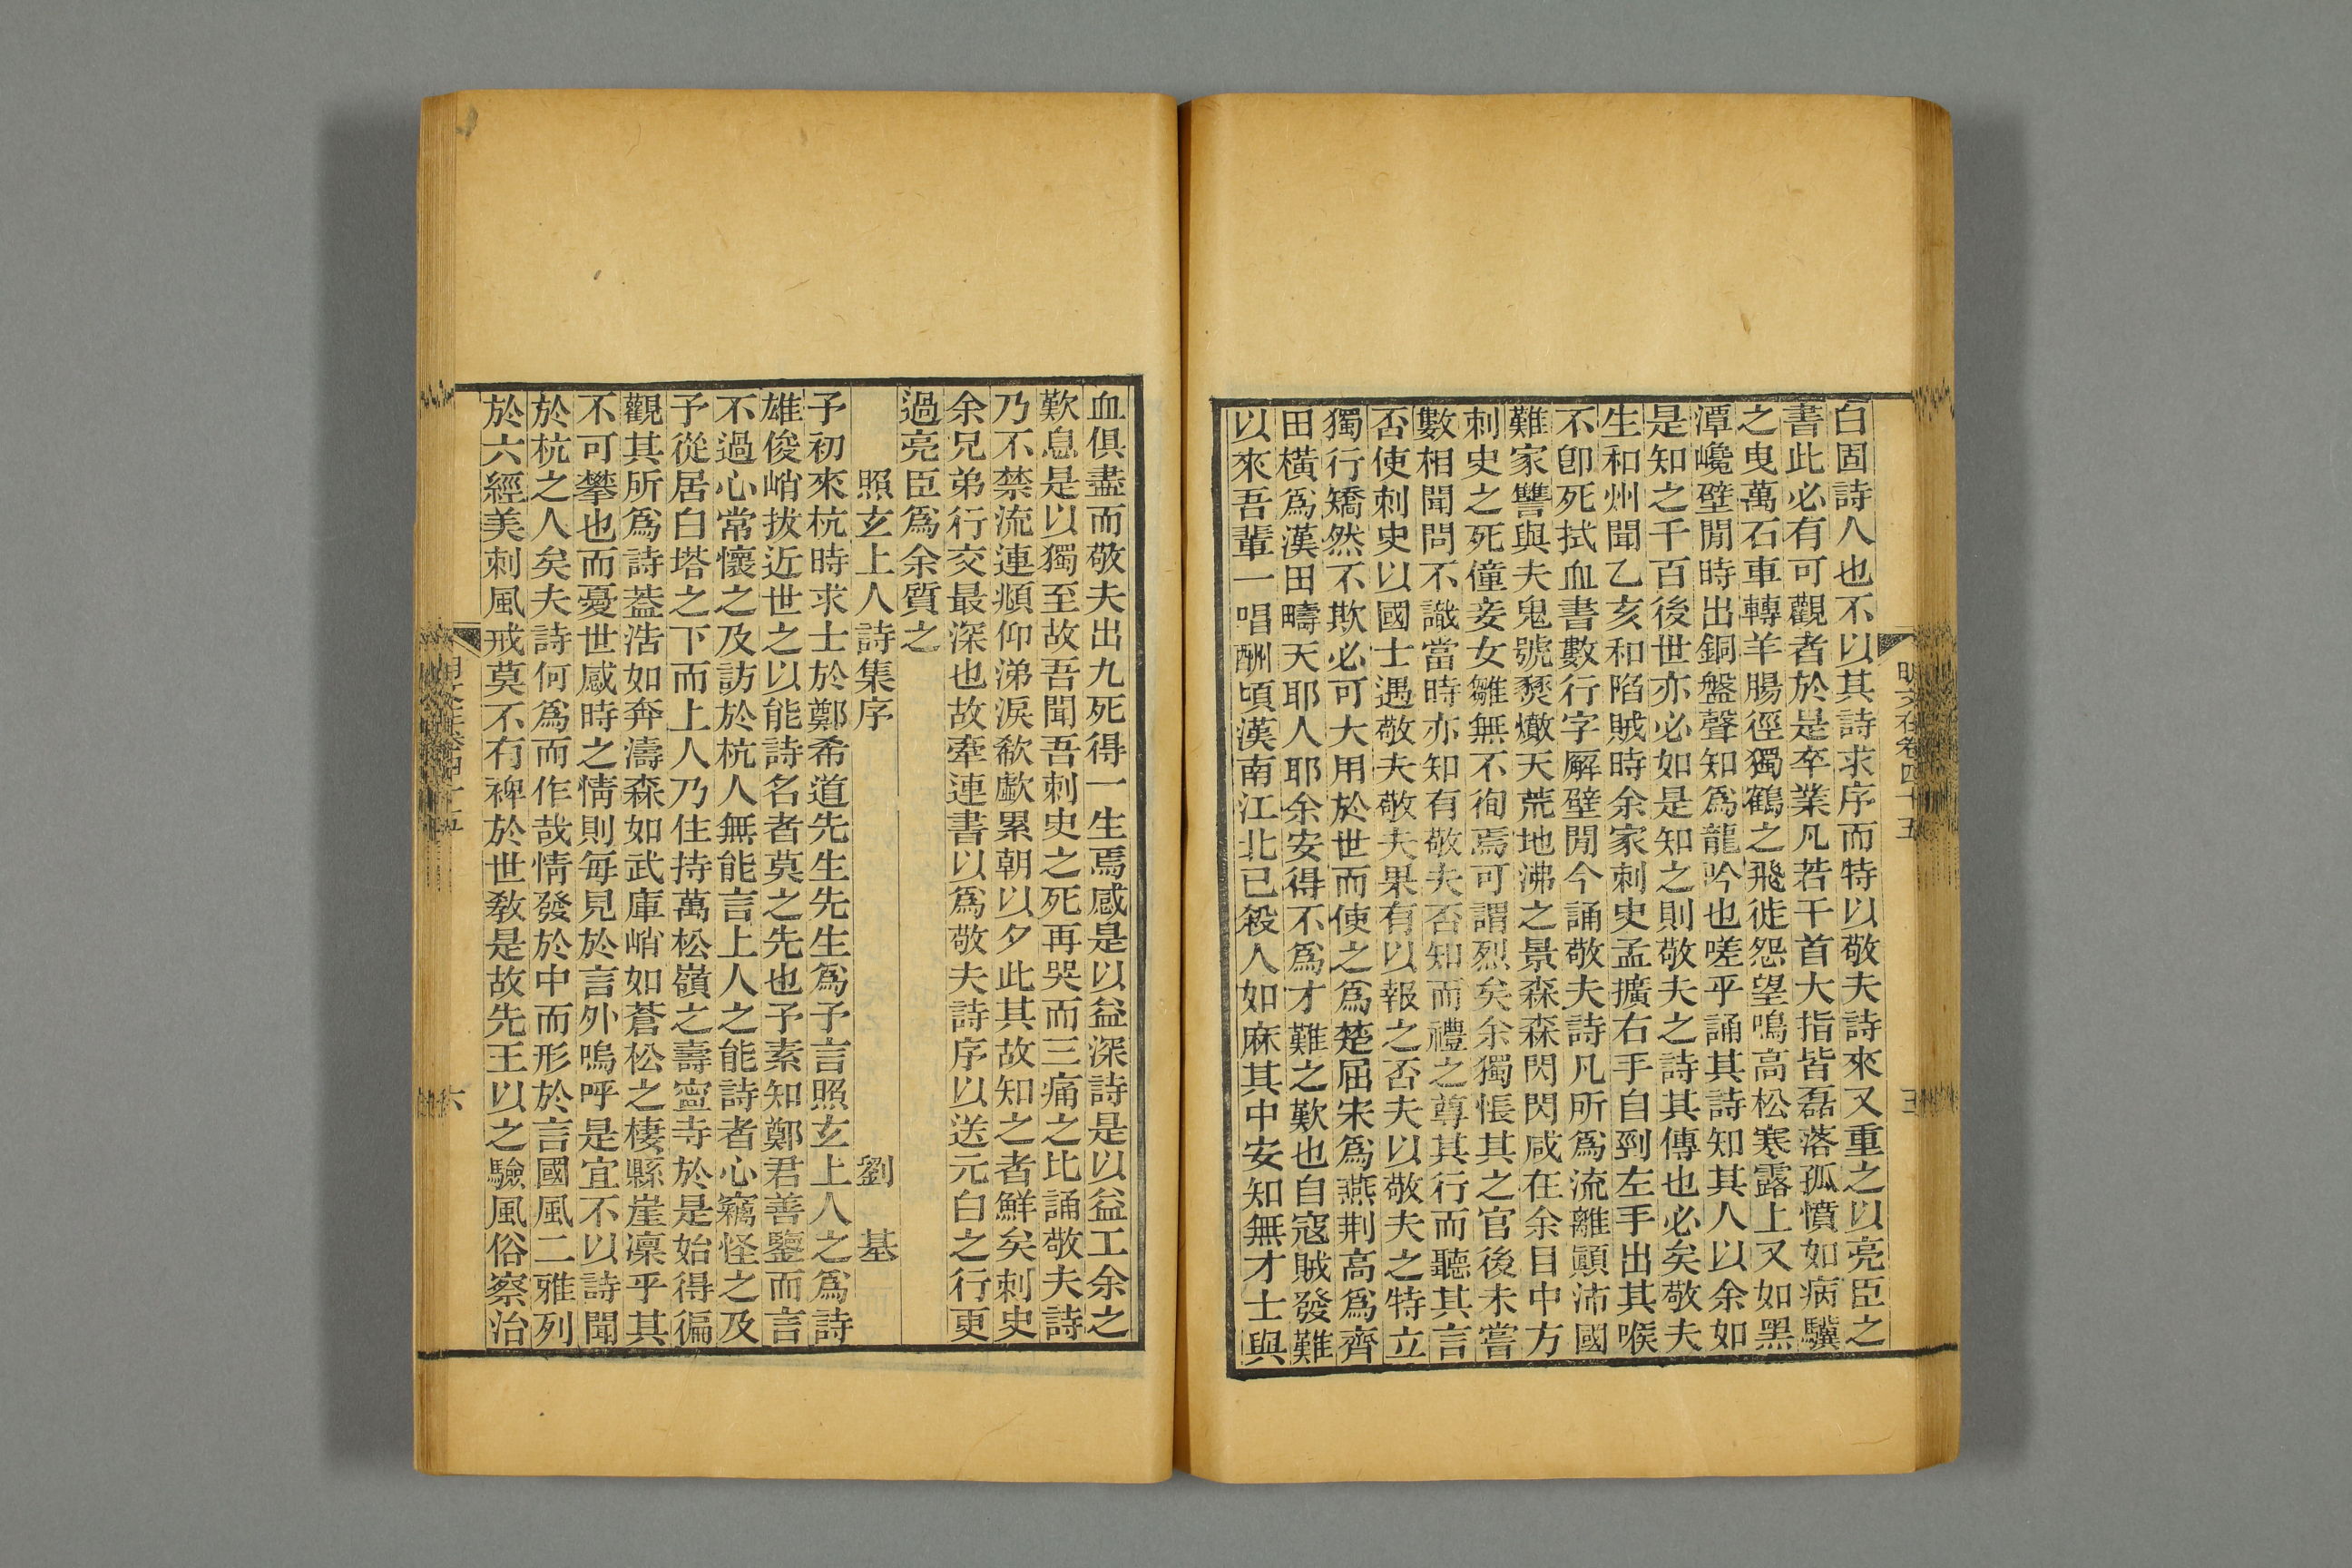 白固詩人也不以其詩求序而特以敬夫詩來又重之以亮臣之
書此必有可觀者於是卒業凡若干首大指皆磊落孤憤如病驥
之曳萬石車轉羊腸徑獨鶴之飛徙怨望鳴高松寒露上又如黑
潭巉壁閒時出銅盤聲知爲龍吟也嗟乎誦其詩知其人以余如
是知之千百後世亦必如是知之則敬夫之詩其傳也必矣敬夫
生和州聞乙亥和陷賊時余家刺史孟擴右手自剄左手出其喉
不卽死拭血書數行字厰壁閒今誦敬夫詩凡所爲流離顚沛國
難家讐與夫鬼號燹爔天荒地沸之景森森閃閃咸在余目中方
刺史之死僮妾女雛無不徇焉可謂烈矣余獨悵其之官後未嘗
數相聞問不識當時亦知有敬夫否知而禮之尊其行而聽其言
否使刺史以國士遇敬夫敬夫果有以報之否夫以敬夫之特立
獨行矯然不欺必可大用於世而使之爲楚屈宋爲燕荆高爲齊
田橫爲漢田疇天耶人耶余安得不爲才難之歎也自寇賊發難
以來吾輩一唱酬頃漢南江北已殺人如麻其中安知無才士與
明文在卷四十五
五
血俱盡而敬夫出九死得一生焉感是以益深詩是以益工余之
歎息是以獨至故吾聞吾刺史之死再哭而三痛之比誦敬夫詩
乃不禁流連頫仰涕淚欷歔累朝以夕此其故知之者鮮矣刺史
余兄弟行交最深也故牽連書以爲敬夫詩序以送元白之行更
過亮臣爲余質之
照玄上人詩集序　劉基
予初來杭時求士於鄭希道先生先生爲予言照玄上人之爲詩
雄俊峭拔近世之以能詩名者莫之先也予素知鄭君善鑒而言
不過心常懷之及訪於杭人無能言上人之能詩者心竊怪之及
予從居白塔之下而上人乃住持萬松嶺之壽寧寺於是始得徧
觀其所爲詩葢浩如奔濤森如武庫峭如蒼松之棲縣崖凜乎其
不可攀也而憂世感時之情則每見於言外嗚呼是宜不以詩聞
於杭之人矣夫詩何爲而作哉情發於中而形於言國風二雅列
於六經美刺風戒莫不有裨於世敎是故先王以之驗風俗察治
明文在卷四十五
六